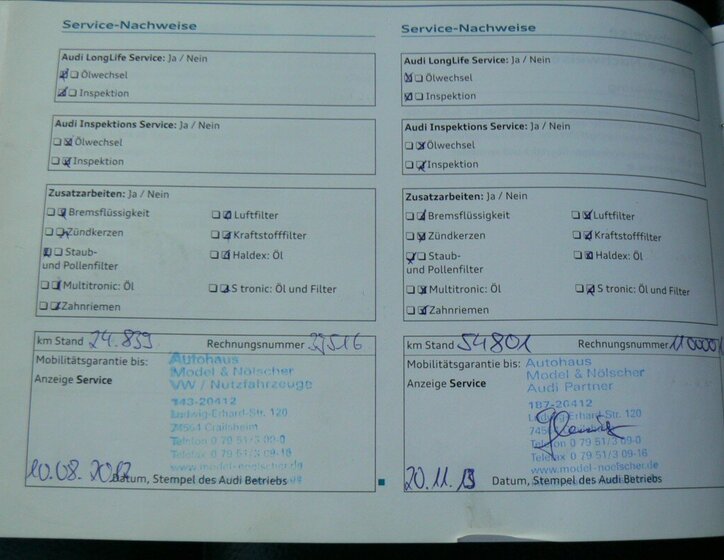 Service-Nachweise
Audi LongLife Service: Ja / Nein
Ölwechsel
Inspektion
Audi Inspektions Service: Ja / Nein
Ölwechsel
Inspektion
Zusatzarbeiten: Ja / Nein
Bremsflüssigkeit
Luftfilter
Zündkerzen
Kraftstofffilter
Staub-
und Pollenfilter
Haldex: Öl
Multitronic: Öl
S tronic: Öl und Filter
Zahnriemen
km Stand 24.839
Rechnungsnummer 37516
Mobilitätsgarantie bis:
Anzeige Service
Autohaus
Model & Nölscher
VW / Nutzfahrzeuge
143-20412
Ludwig-Erhard-Str. 120
74564 Crailsheim
Telefon 0 79 51/3 09-0
Telefax 0 79 51/3 09-16
www.model-noelscher.de
10.08.2012
Datum, Stempel des Audi Betriebs
Service-Nachweise
Audi LongLife Service: Ja / Nein
Ölwechsel
Inspektion
Audi Inspektions Service: Ja / Nein
Ölwechsel
Inspektion
Zusatzarbeiten: Ja / Nein
Bremsflüssigkeit
Luftfilter
Zündkerzen
Kraftstofffilter
Staub-
und Pollenfilter
Haldex: Öl
Multitronic: Öl
S tronic: Öl und Filter
Zahnriemen
km Stand 54801
Rechnungsnummer
Mobilitätsgarantie bis:
Anzeige Service
Autohaus
Model & Nölscher
Audi Partner
187-20412
Ludwig-Erhard-Str. 120
Telefon 0 79 51/3 09-0
Telefax 0 79 51/3 09-16
www.model-noelscher.de
20.11.13
Datum, Stempel des Audi Betriebs